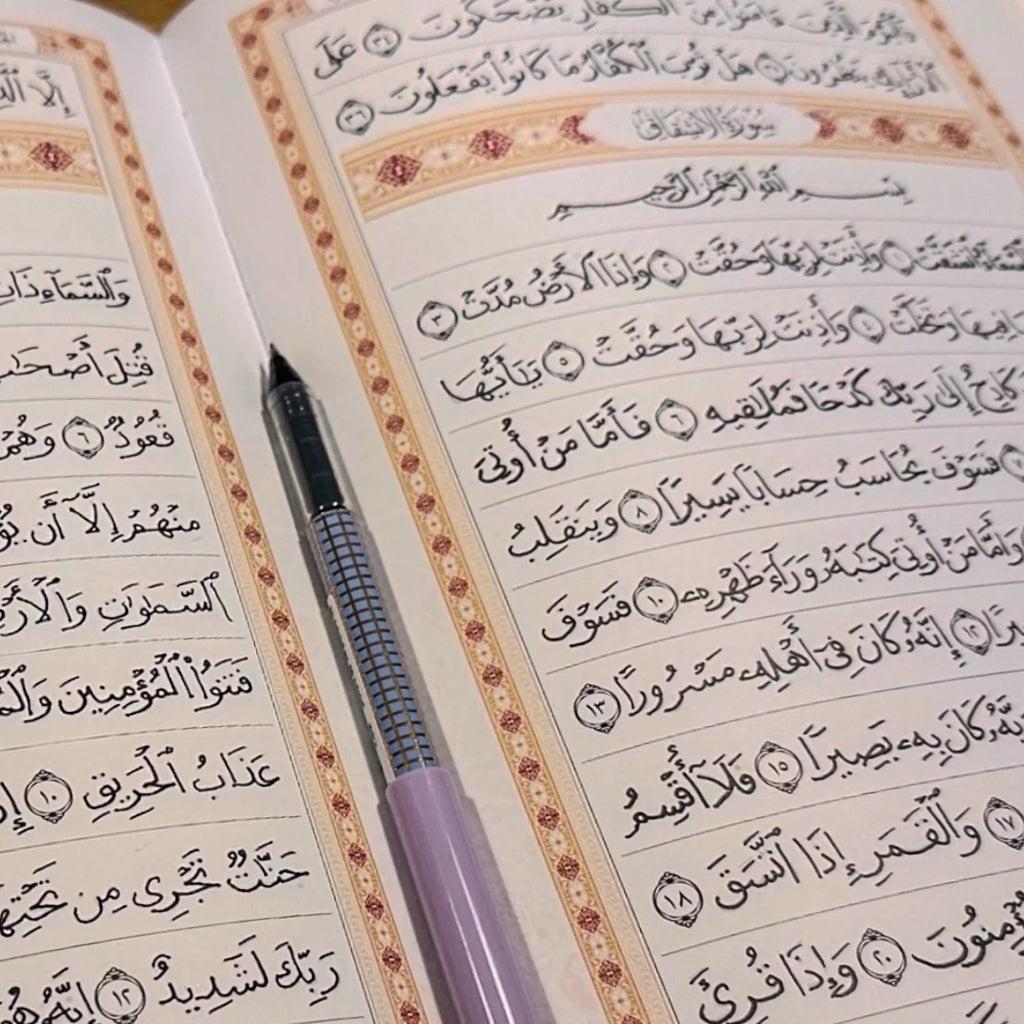 فَٱلۡيَوۡمَ ٱلَّذِينَ ءَامَنُواْ مِنَ ٱلۡكُفَّارِ يَضۡحَكُونَ ٣٤ عَلَى
ٱلۡأَرَآئِكِ يَنظُرُونَ ٣٥ هَلۡ ثُوِّبَ ٱلۡكُفَّارُ مَا كَانُواْ يَفۡعَلُونَ ٣٦
سُورَةُ الانشِقَاقِ
بِسۡمِ ٱللَّهِ ٱلرَّحۡمَٰنِ ٱلرَّحِيمِ
ٱلسَّمَآءُ ٱنشَقَّتۡ ١ وَأَذِنَتۡ لِرَبِّهَا وَحُقَّتۡ ٢ وَإِذَا ٱلۡأَرۡضُ مُدَّتۡ ٣
مَا فِيهَا وَتَخَلَّتۡ ٤ وَأَذِنَتۡ لِرَبِّهَا وَحُقَّتۡ ٥ يَٰٓأَيُّهَا
كَادِحٌ إِلَىٰ رَبِّكَ كَدۡحًا فَمُلَٰقِيهِ ٦ فَأَمَّا مَنۡ أُوتِيَ
٧ فَسَوۡفَ يُحَاسَبُ حِسَابًا يَسِيرًا ٨ وَيَنقَلِبُ
وَأَمَّا مَنۡ أُوتِيَ كِتَٰبَهُۥ وَرَآءَ ظَهۡرِهِۦ ١٠ فَسَوۡفَ
يرًا ١٢ إِنَّهُۥ كَانَ فِيٓ أَهۡلِهِۦ مَسۡرُورًا ١٣
رَبَّهُۥ كَانَ بِهِۦ بَصِيرًا ١٥ فَلَآ أُقۡسِمُ
١٧ وَٱلۡقَمَرِ إِذَا ٱتَّسَقَ ١٨
يُؤۡمِنُونَ ٢٠ وَإِذَا قُرِئَ
إِلَّا ٱلَّذ
وَٱلسَّمَآءِ ذَاتِ
قُتِلَ أَصۡحَٰبُ
قُعُودٞ ٦ وَهُمۡ
مِنۡهُمۡ إِلَّآ أَن يُؤ
ٱلسَّمَٰوَٰتِ وَٱلۡأَرۡ
فَتَنُواْ ٱلۡمُؤۡمِنِينَ وَٱلۡمُ
عَذَابُ ٱلۡحَرِيقِ ١٠ إِنَّ
جَنَّٰتٞ تَجۡرِي مِن تَحۡتِهَا
رَبِّكَ لَشَدِيدٌ ١٢ إِنَّهُۥ هُوَ